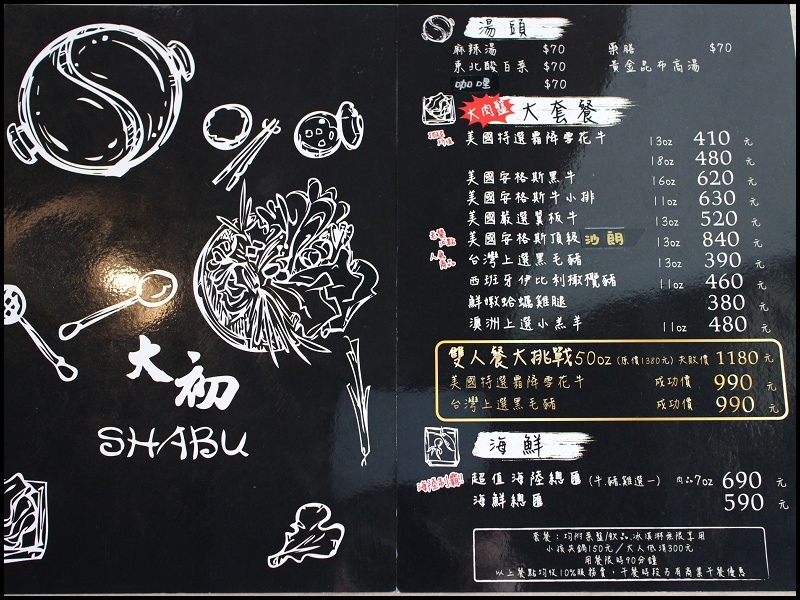 大初
SHABU
湯頭
麻辣湯 $70 藥膳 $70
東北酸白菜 $70 黃金昆布高湯
咖哩 $70
大肉盤 大套餐
美國特選霜降雪花牛 13oz 410 元
18oz 480 元
美國安格斯黑牛 16oz 620 元
美國安格斯牛小排 11oz 630 元
美國嚴選翼板牛 13oz 520 元
美國安格斯頂級 沙朗 13oz 840 元
台灣上選黑毛豬 13oz 390 元
西班牙伊比利橄欖豬 11oz 460 元
鮮嫩蛤蠣雞腿 380 元
澳洲上選小羔羊 11oz 480 元
雙人餐大挑戰50oz (原價1380元) 失敗價 1180 元
美國特選霜降雪花牛 成功價 990 元
台灣上選黑毛豬 成功價 990 元
海鮮
海陸制霸! 超值海陸總匯 (牛.豬.雞選一) 肉品7oz 690 元
海鮮總匯 590 元
套餐：均附菜盤/飲品.冰淇淋無限享用
小孩共鍋150元／大人低消300元
用餐限時90分鐘
以上餐點均收10%服務費，午餐時段另有商業午餐優惠